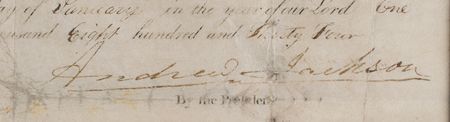 of January in the year of our Lord One
thousand Eight hundred and Thirty Four
Andrew Jackson
By the President